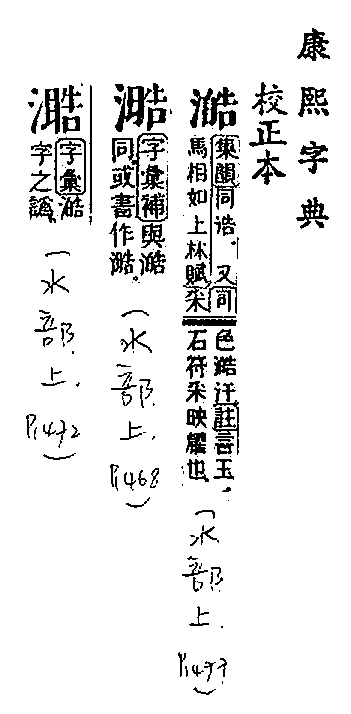 康熙字典
校正本
澔
集韻同浩。又司
馬相如上林賦采
色澔汗註言玉
石符采映耀也
(水部上. P.1477)
字彙補與澔
同或書作澔。
(水部上. P.1468)
字彙澔
字之譌
(水部上. P.1472)